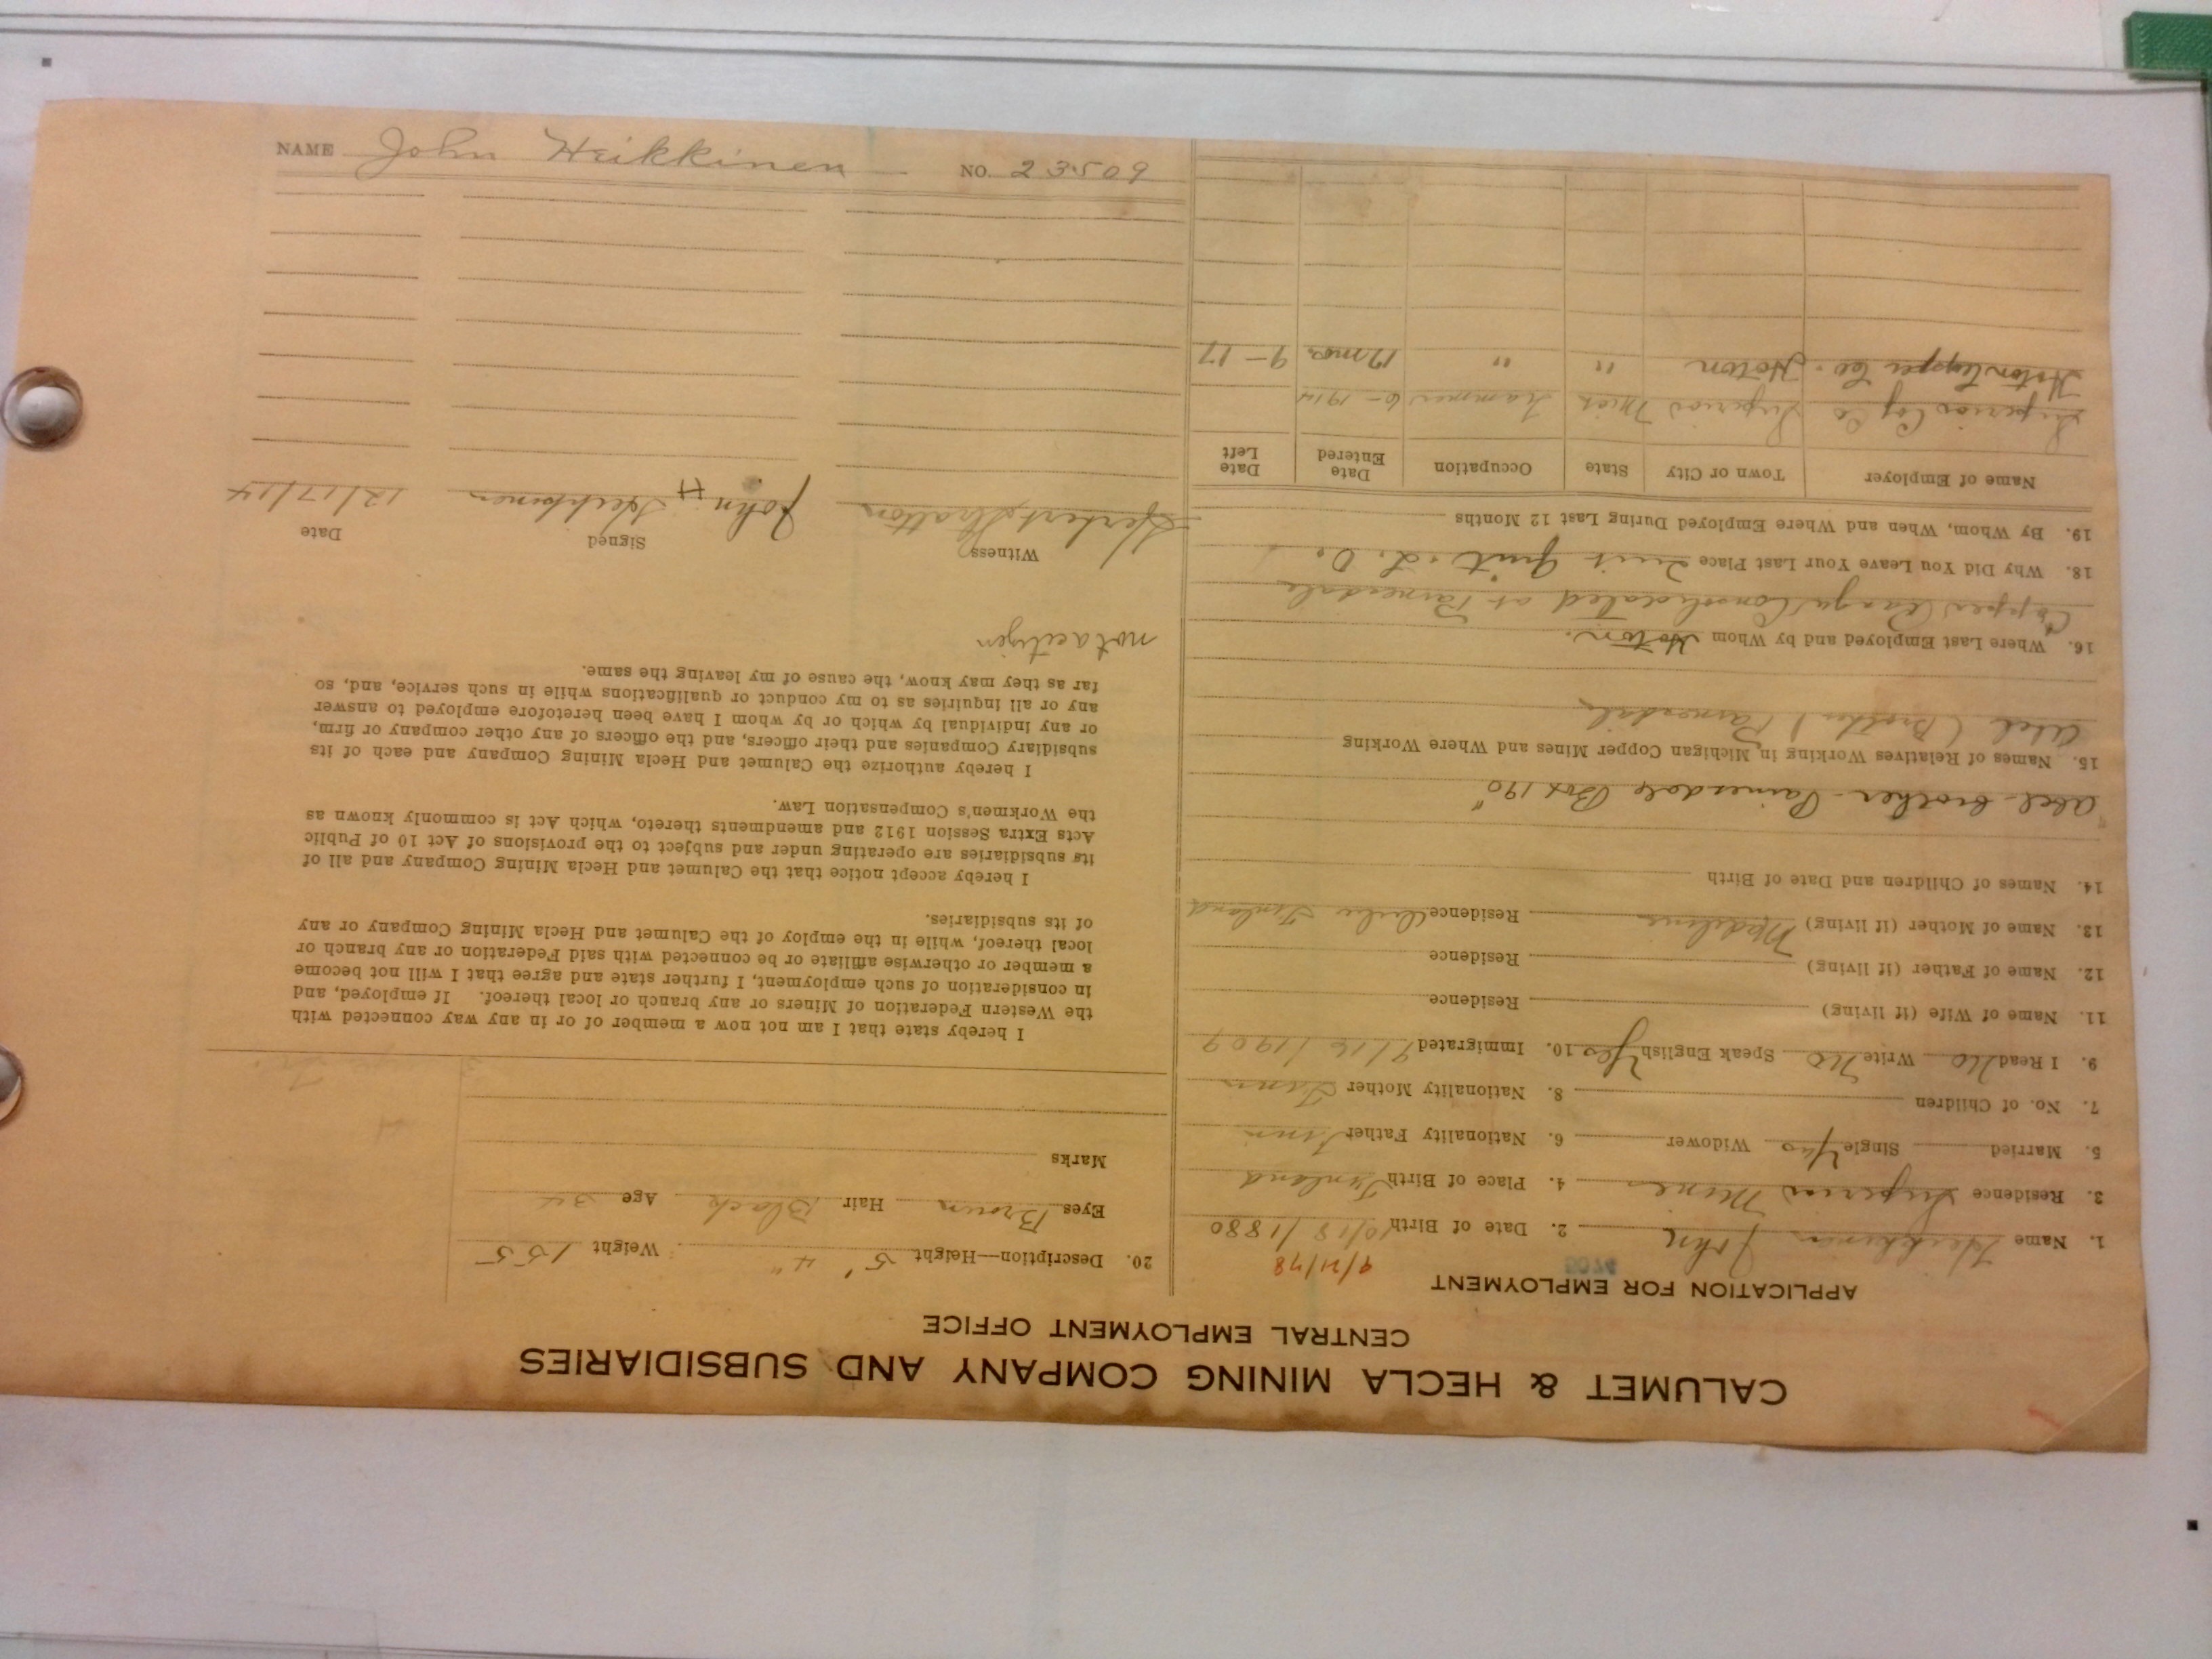 CALUMET & HECLA MINING COMPANY AND SUBSIDIARIES
CENTRAL EMPLOYMENT OFFICE
APPLICATION FOR EMPLOYMENT
5074
1. Name Heikkinen John 2. Date of Birth 10/18/1880
3. Residence Superior Mine 4. Place of Birth Finland
5. Married Single Yes Widower 6. Nationality Father Finn
7. No. of Children 8. Nationality Mother Finn
9. I Read No Write No Speak English Yes 10. Immigrated
11. Name of Wife (if living) Residence
12. Name of Father (if living) Residence
13. Name of Mother (if living) Residence Finland
14. Names of Children and Date of Birth
Abel - brother - Painesdale Box 190"
15. Names of Relatives Working in Michigan Copper Mines and Where Working
Abel (Brother) Painesdale
16. Where Last Employed and by Whom Hoton.
Copper Range Consolidated at Painesdale
18. Why Did You Leave Your Last Place Quit
19. By Whom, When and Where Employed During Last 12 Months
Name of Employer Town or City State Occupation Date Entered Date Left
Superior Cop Co Superior Mich trammer 6-1914
Hoton Copper Co. Hoton " " 17 mos. 9-17
20. Description—Height 5' 4" Weight 155
Eyes Brown Hair Black Age 34
Marks
I hereby state that I am not now a member of or in any way connected with
the Western Federation of Miners or any branch or local thereof. If employed, and
in consideration of such employment, I further state and agree that I will not become
a member or otherwise affiliate or be connected with said Federation or any branch or
local thereof, while in the employ of the Calumet and Hecla Mining Company or any
of its subsidiaries.
I hereby accept notice that the Calumet and Hecla Mining Company and all of
its subsidiaries are operating under and subject to the provisions of Act 10 of Public
Acts Extra Session 1912 and amendments thereto, which Act is commonly known as
the Workmen's Compensation Law.
I hereby authorize the Calumet and Hecla Mining Company and each of its
subsidiary Companies and their officers, and the officers of any other company or firm,
or any individual by which or by whom I have been heretofore employed to answer
any or all inquiries as to my conduct or qualifications while in such service, and, so
far as they may know, the cause of my leaving the same.
not a citizen
Witness Signed Date
Herbert Stratton John H Heikkinen 12/17/14
NAME John Heikkinen NO. 23509